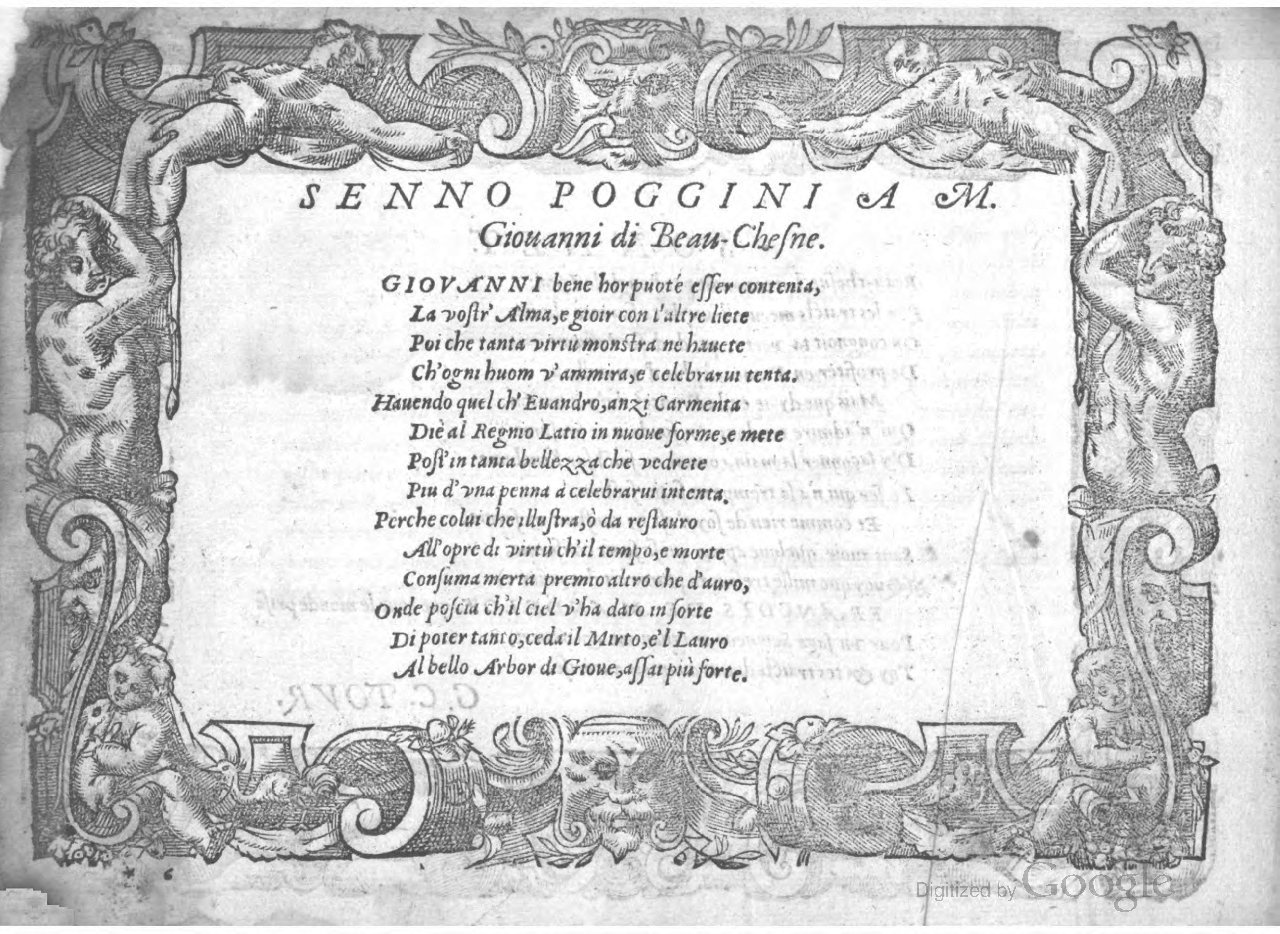 SENNO POGGINI A M.
Giouanni di Beau-Chesne.
GIOVANNI bene hor puote esser contenta,
La vostr' Alma, e gioir con l'altre liete
Poi che tanta virtù monstra ne hauete
Ch'ogni huom v'ammira, e celebrarui tenta.
Hauendo quel ch' Euandro, anzi Carmenta
Diè al Regnio Latio in nuoue forme, e mete
Post' in tanta bellezza che vedrete
Piu d'vna penna à celebrarui intenta.
Perche colui che illustra, ò da restauro
All'opre di virtù ch'il tempo, e morte
Consuma merta premio altro che d'auro,
Onde poscia ch'il ciel v'ha dato in sorte
Di poter tanto, ceda il Mirto, e'l Lauro
Al bello Arbor di Gioue, assai più forte.
G. C. TOVR.
* 6
Digitized by Google